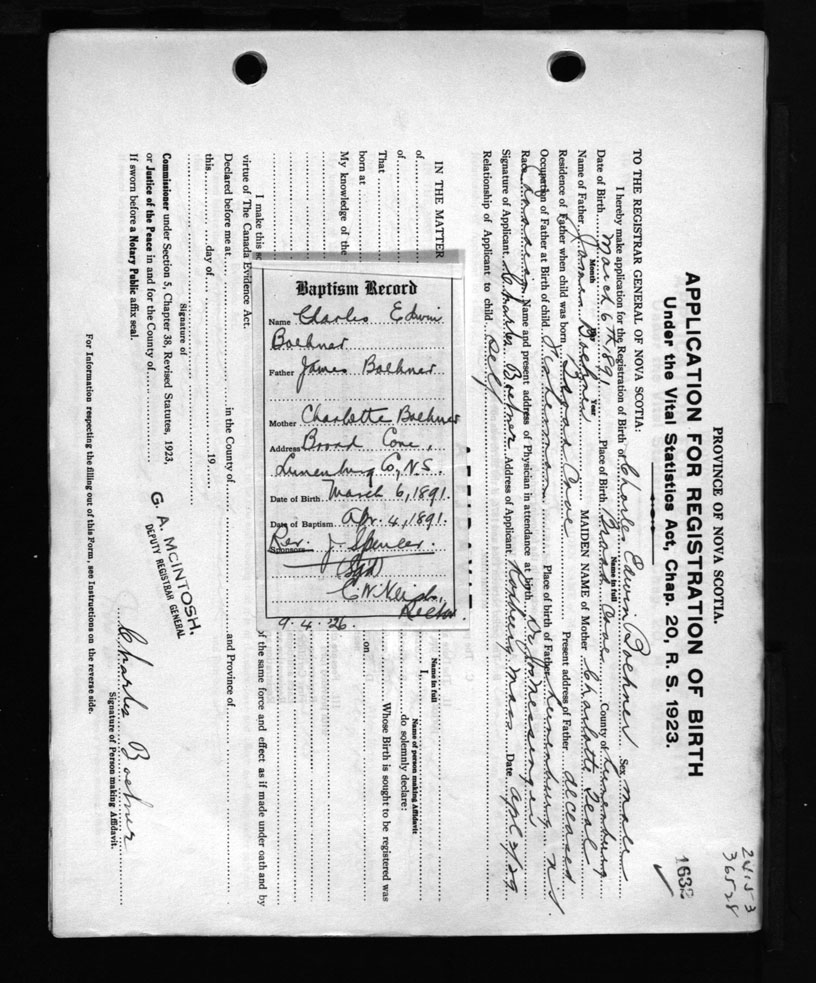 24153
36528
1636
PROVINCE OF NOVA SCOTIA.
APPLICATION FOR REGISTRATION OF BIRTH
Under the Vital Statistics Act, Chap. 20, R. S. 1923.
TO THE REGISTRAR GENERAL OF NOVA SCOTIA:
I hereby make application for the Registration of Birth of Charles Edwin Boehner Sex male
Name in full
Date of Birth March 6th 1891 Place of Birth Broad Cove County of Lunenburg
Month Day Year
Name of Father James Boehner MAIDEN NAME of Mother Charlotte Teal
Residence of Father when child was born Broad Cove Present address of Father deceased
Occupation of Father at Birth of child Fisherman Place of birth of Father Lunenburg N.S.
Race Name and present address of Physician in attendance at birth Dr
Signature of Applicant Charles Boehner Address of Applicant Mass Date Apl 2/29
Relationship of Applicant to child Self
IN THE MATTER
of Name in full
of I,
Name of person making Affidavit
do solemnly declare:
That Whose Birth is sought to be registered was
born at on
My knowledge of the
I make this so of the same force and effect as if made under oath and by
virtue of The Canada Evidence Act.
Declared before me at in the County of and Province of
this day of 19
Signature of
Charles Boehner
Signature of Person making Affidavit.
G. A. McINTOSH.
DEPUTY REGISTRAR GENERAL
Commissioner under Section 5, Chapter 38, Revised Statutes, 1923,
or Justice of the Peace in and for the County of
If sworn before a Notary Public affix seal.
For Information respecting the filling out of this Form, see instructions on the reverse side.
Baptism Record
Name Charles Edwin
Boehner
Father James Boehner
Mother Charlotte Boehner
Address Broad Cove,
Lunenburg Co, N.S.
Date of Birth March 6, 1891.
Date of Baptism Apr. 4, 1891.
Sponsors Rev. J Spencer.
(Sgd)
Rector
9.4.26.